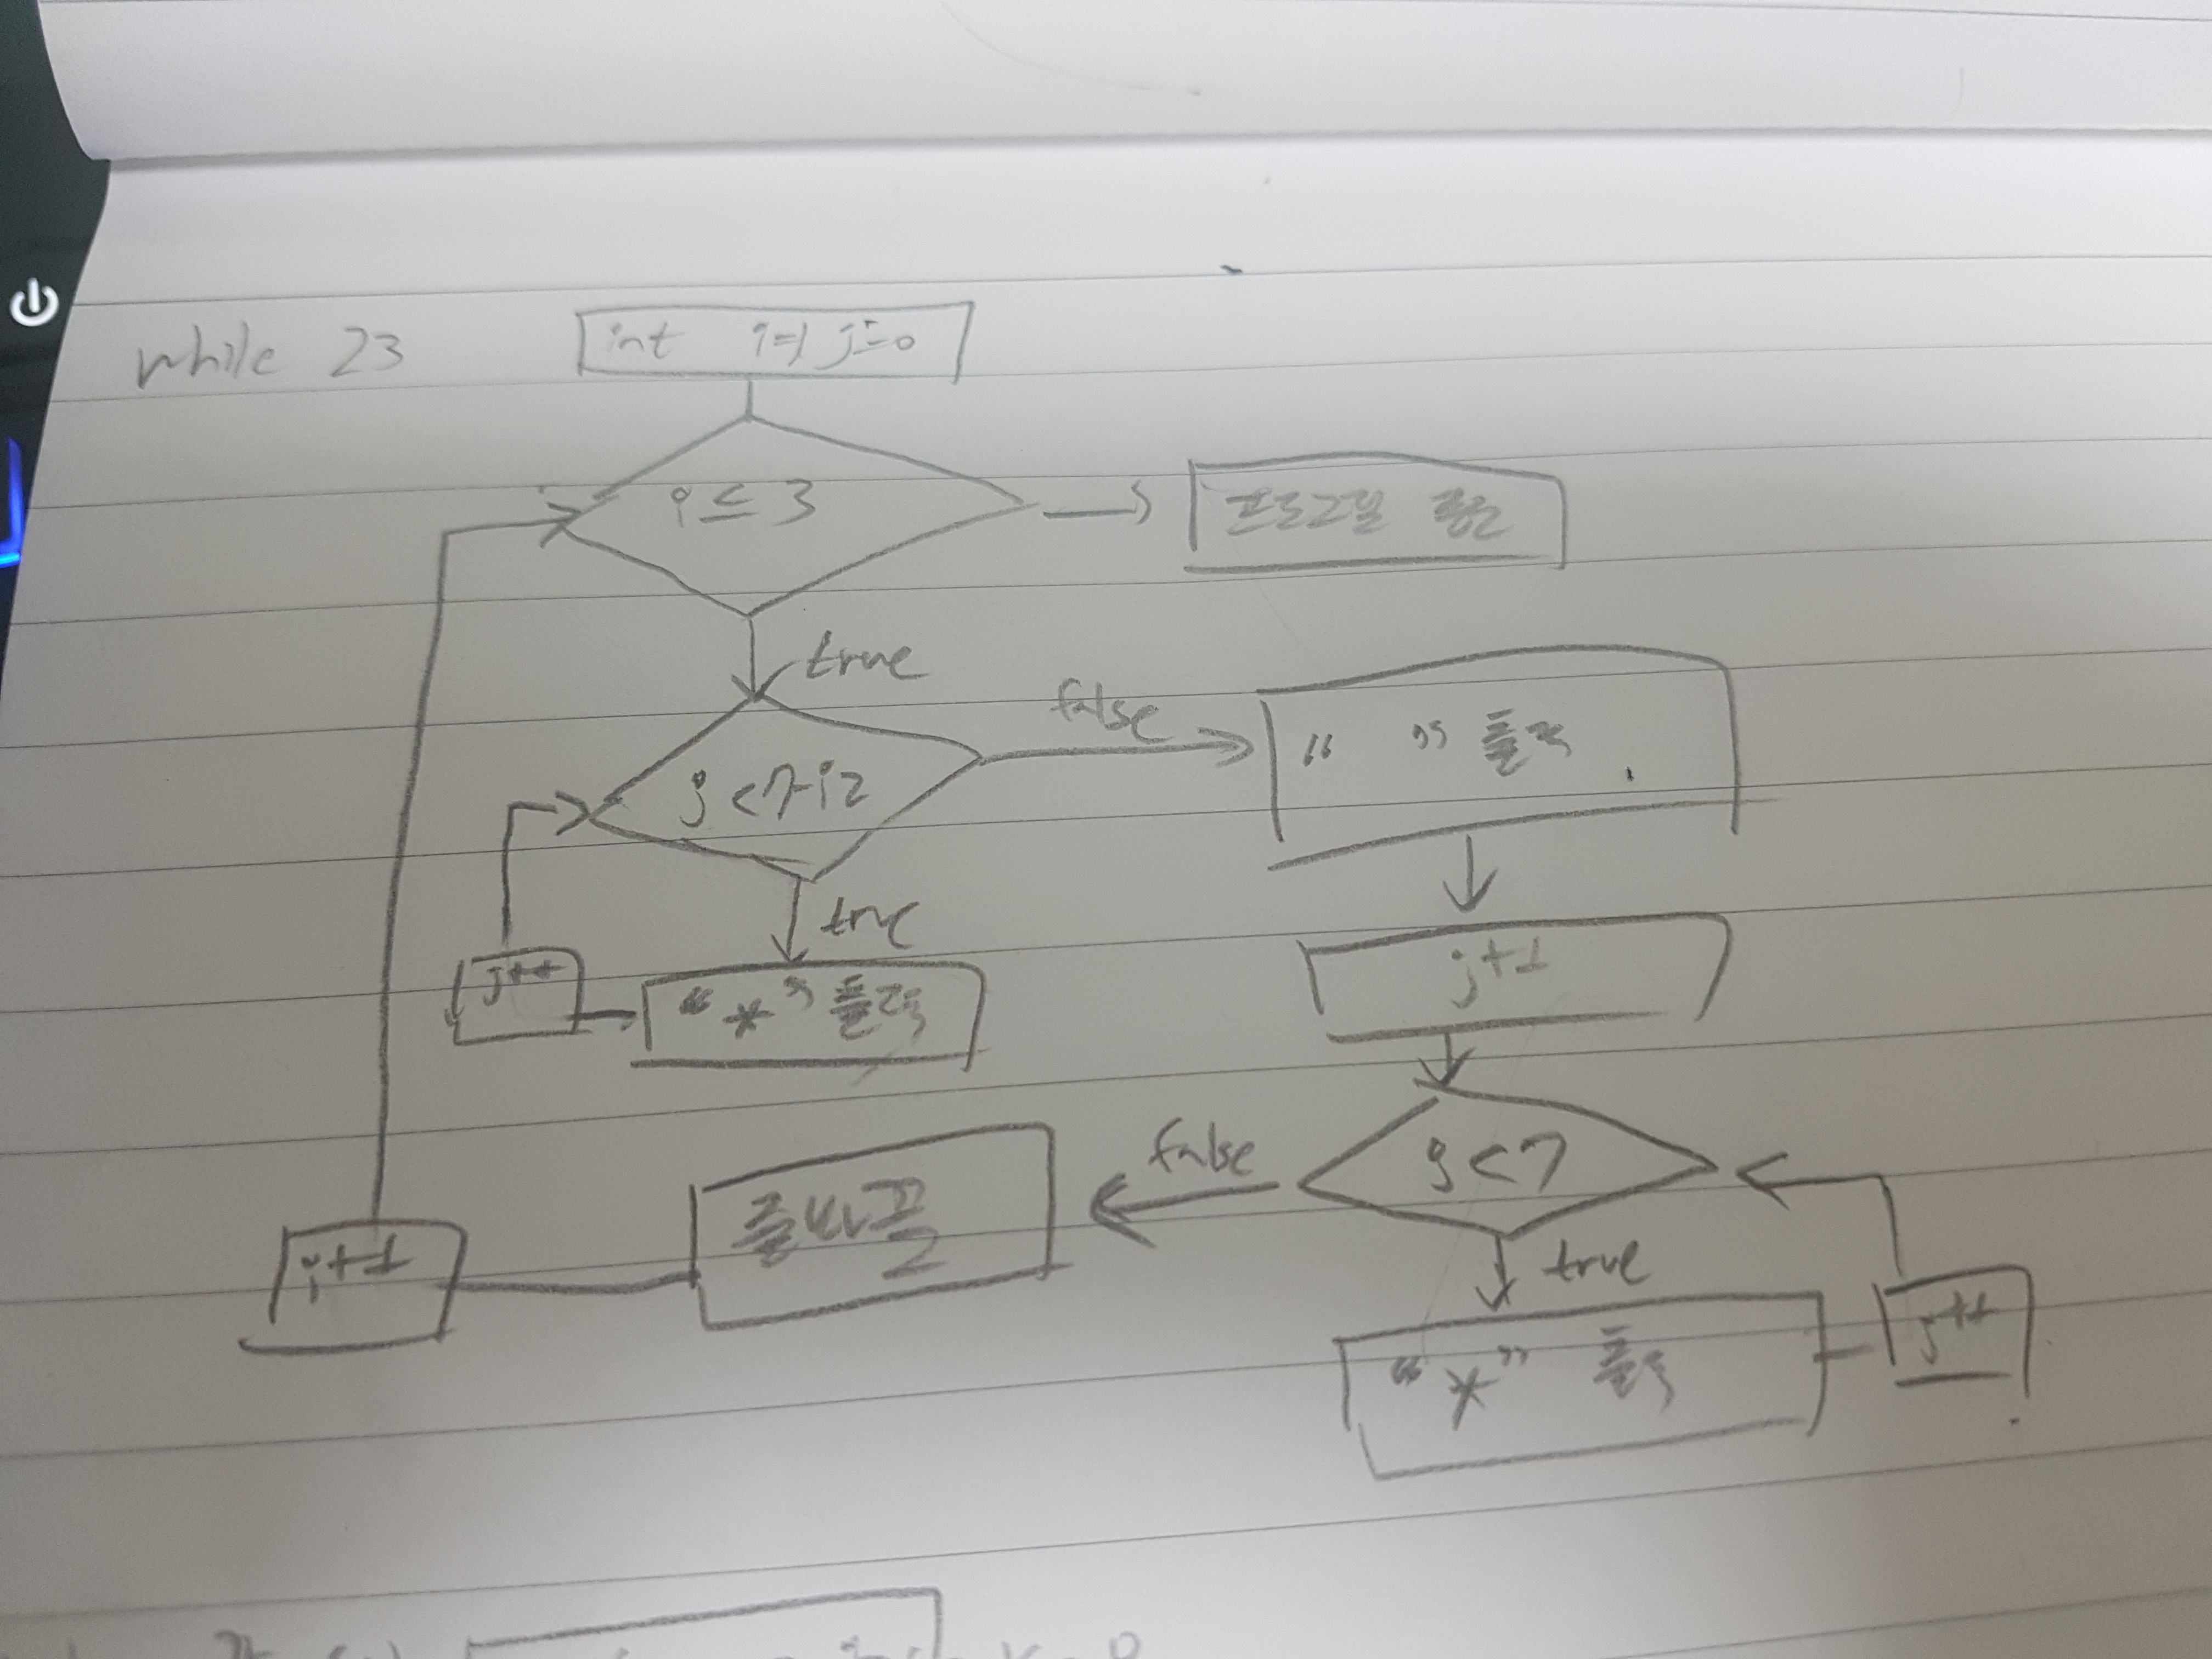 while 23
int i=1 j=0
i ≤ 3
프로그램 종료
true
false
j < 7-i2
" " 출력
true
j++
"*" 출력
j+1
j < 7
false
줄바꿈
i+1
true
"*" 출력
j++